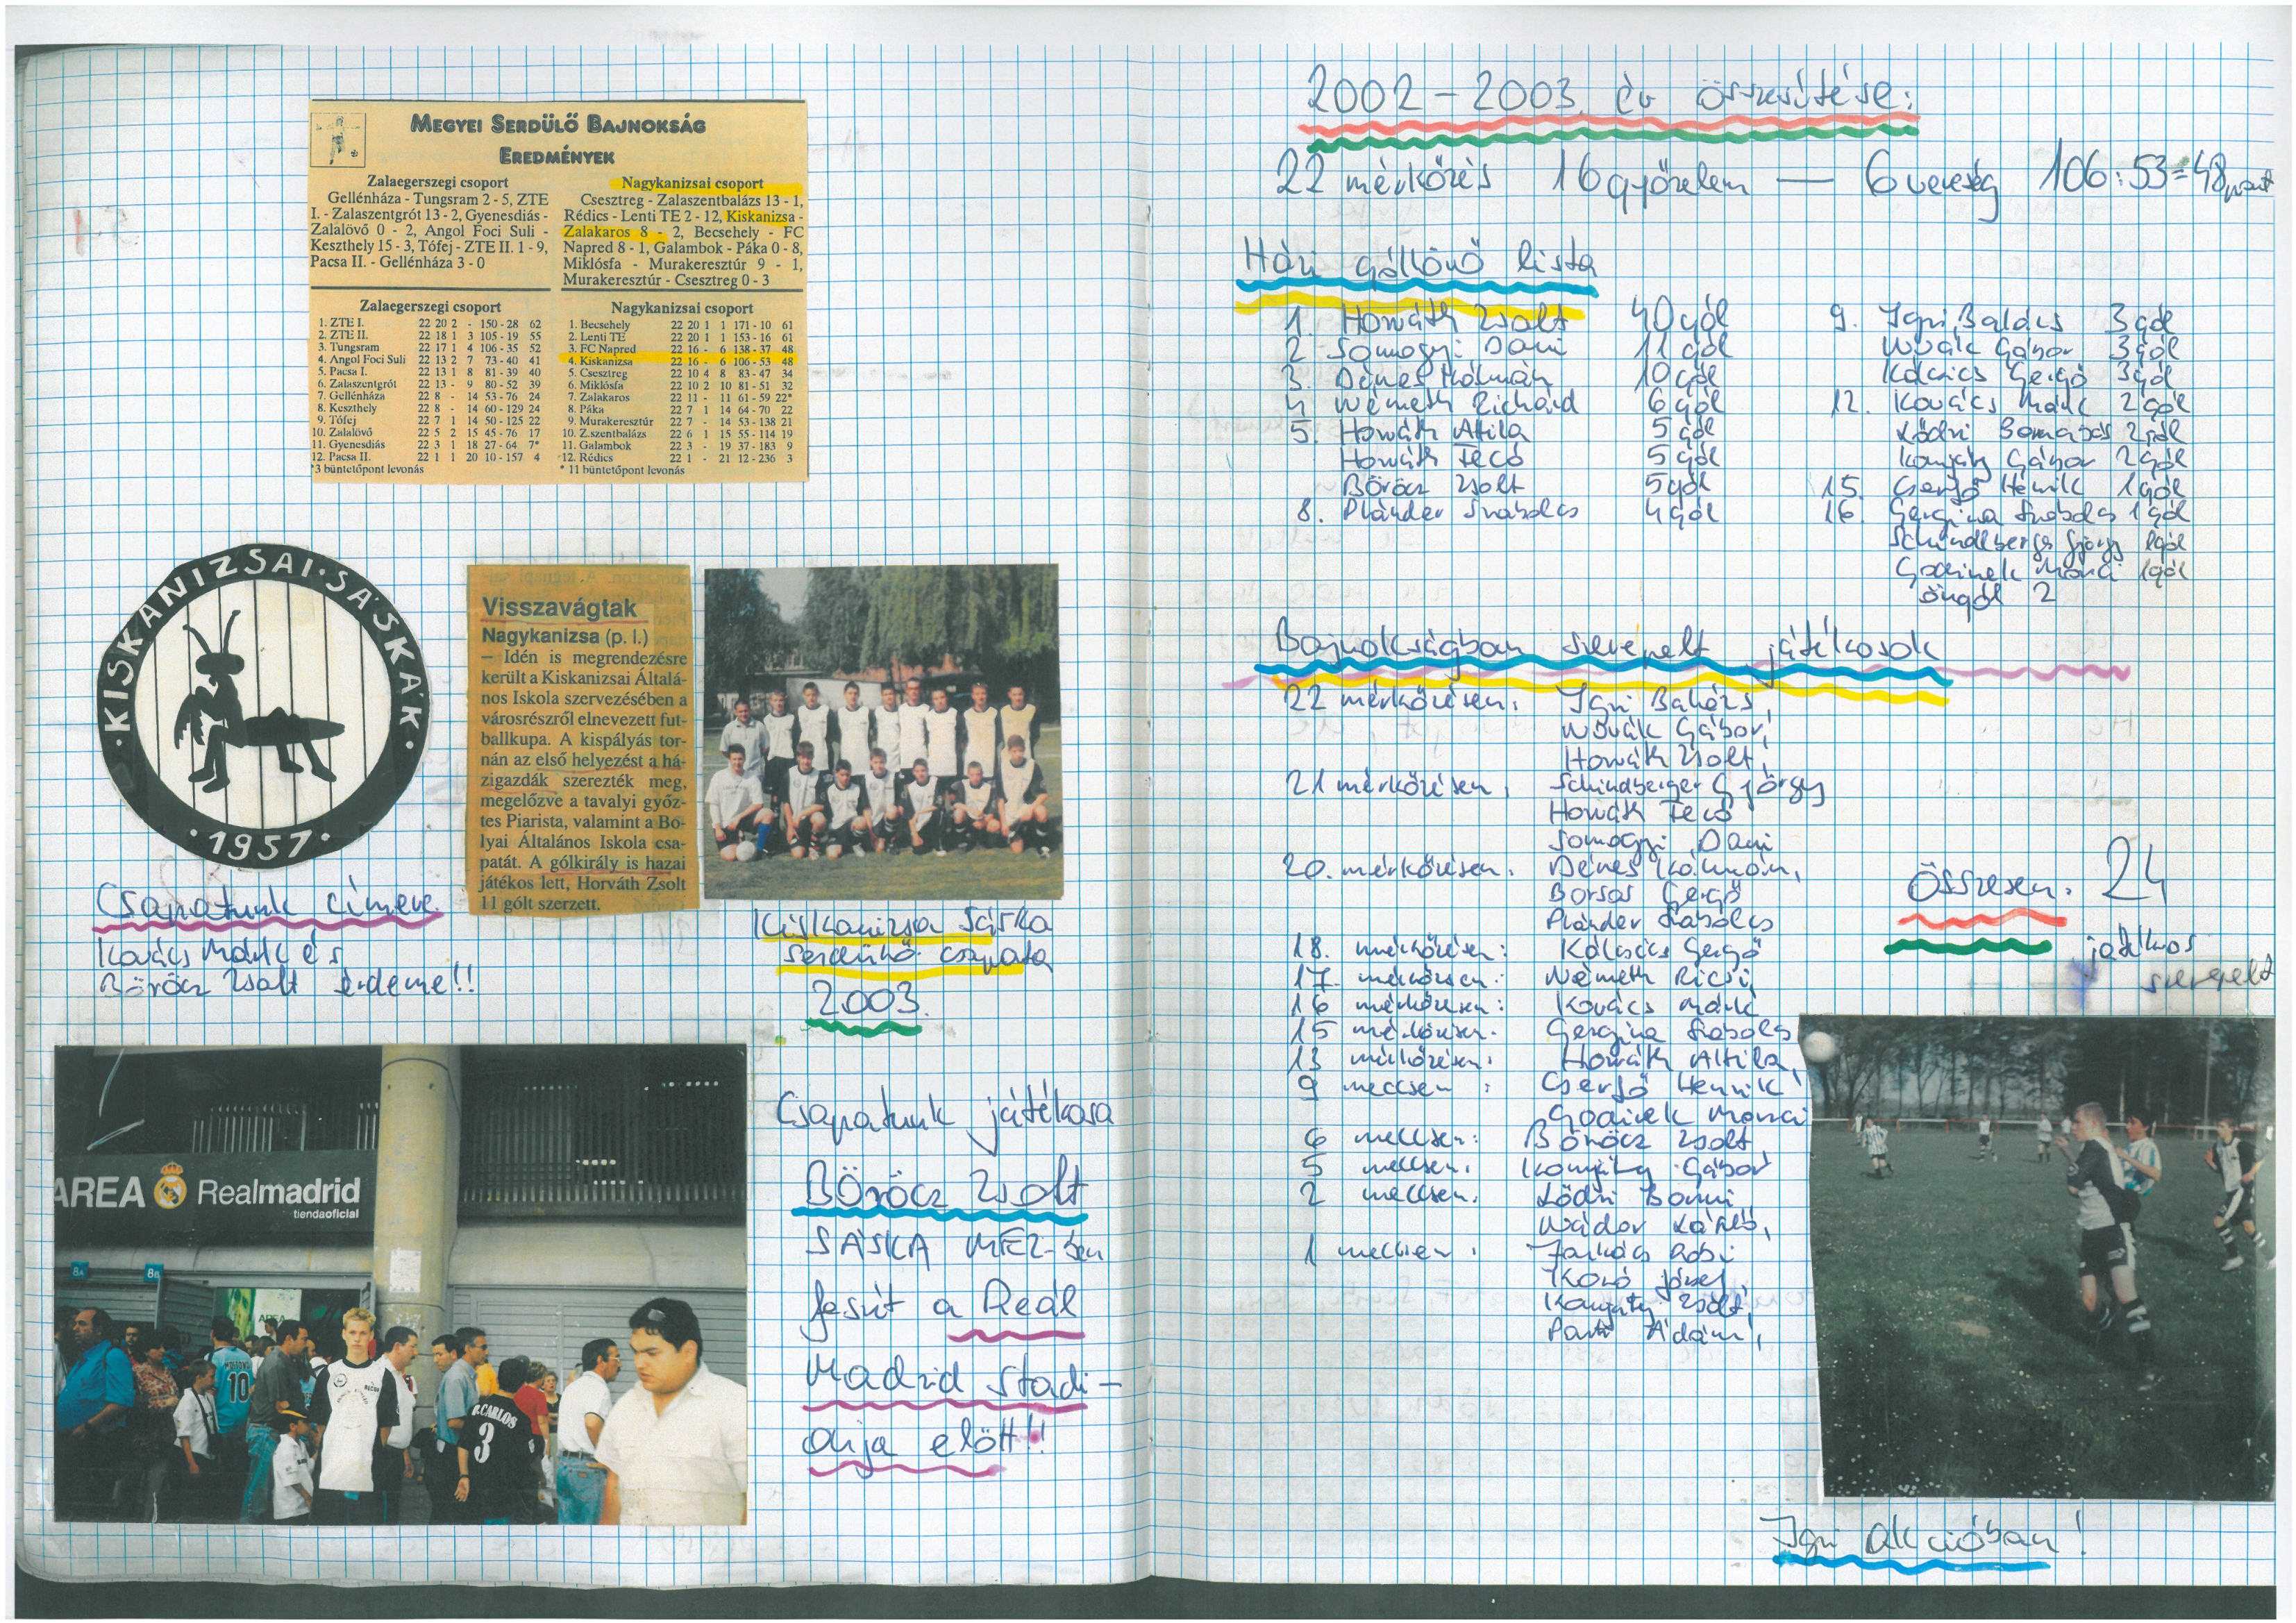 MEGYEI SERDÜLŐ BAJNOKSÁG
EREDMÉNYEK
Zalaegerszegi csoport
Gellénháza - Tungsram 2 - 5, ZTE
I. - Zalaszentgrót 13 - 2, Gyenesdiás -
Zalalövő 0 - 2, Angol Foci Suli -
Keszthely 15 - 3, Tófej - ZTE II. 1 - 9,
Pacsa II. - Gellénháza 3 - 0
Nagykanizsai csoport
Csesztreg - Zalaszentbalázs 13 - 1,
Rédics - Lenti TE 2 - 12, Kiskanizsa -
Zalakaros 8 - 2, Becsehely - FC
Napred 8 - 1, Galambok - Páka 0 - 8,
Miklósfa - Murakeresztúr 9 - 1,
Murakeresztúr - Csesztreg 0 - 3
Zalaegerszegi csoport
1. ZTE I. 22 20 2 - 150 - 28 62
2. ZTE II. 22 18 1 3 105 - 19 55
3. Tungsram 22 17 1 4 106 - 35 52
4. Angol Foci Suli 22 13 2 7 73 - 40 41
5. Pacsa I. 22 13 1 8 81 - 39 40
6. Zalaszentgrót 22 13 - 9 80 - 52 39
7. Gellénháza 22 8 - 14 53 - 76 24
8. Keszthely 22 8 - 14 60 - 129 24
9. Tófej 22 7 1 14 50 - 125 22
10. Zalalövő 22 5 2 15 45 - 76 17
11. Gyenesdiás 22 3 1 18 27 - 64 7*
12. Pacsa II. 22 1 1 20 10 - 157 4
*3 büntetőpont levonás
Nagykanizsai csoport
1. Becsehely 22 20 1 1 171 - 10 61
2. Lenti TE 22 20 1 1 153 - 16 61
3. FC Napred 22 16 - 6 138 - 37 48
4. Kiskanizsa 22 16 - 6 106 - 53 48
5. Csesztreg 22 10 4 8 83 - 47 34
6. Miklósfa 22 10 2 10 81 - 51 32
7. Zalakaros 22 11 - 11 61 - 59 22*
8. Páka 22 7 1 14 64 - 70 22
9. Murakeresztúr 22 7 - 14 53 - 138 21
10. Z.szentbalázs 22 6 1 15 55 - 114 19
11. Galambok 22 3 - 19 37 - 183 9
12. Rédics 22 1 - 21 12 - 236 3
* 11 büntetőpont levonás
KISKANIZSAI · SÁSKÁK ·
· 1957 ·
Csapatunk címere
Kovács Márk és
Böröcz Zsolt érdeme!!
Visszavágtak
Nagykanizsa (p. l.)
– Idén is megrendezésre
került a Kiskanizsai Általá-
nos Iskola szervezésében a
városrészről elnevezett fut-
ballkupa. A kispályás tor-
nán az első helyezést a há-
zigazdák szerezték meg,
megelőzve a tavalyi győz-
tes Piarista, valamint a Bo-
lyai Általános Iskola csa-
patát. A gólkirály is hazai
játékos lett, Horváth Zsolt
11 gólt szerzett.
Kiskanizsa Sáska
serdülő csapata
2003.
AREA Realmadrid
tiendaoficial
8A
8B
AREA
10
R.CARLOS
3
Csapatunk játékosa
Böröcz Zsolt
SÁSKA MEZ-ben
feszít a Reál
Madrid stadi-
onja előtt!!
2002 – 2003. év összesítése:
22 mérkőzés 16 győzelem — 6 vereség 106:53 = 48 pont
Házi góllövő lista
1. Horváth Zsolt 40 gól
2 Somogyi Dani 11 gól
3. Dénes Kálmán 10 gól
4 Németh Richárd 6 gól
5. Horváth Attila 5 gól
Horváth Fecó 5 gól
Böröcz Zsolt 5 gól
8. Plánder Szabolcs 4 gól
9. Igri Balázs 3 gól
Novák Gábor 3 gól
Kálcsics Gergő 3 gól
12. Kovács Márk 2 gól
Lődri Barnabás 2 gól
Konyáty Gábor 2 gól
15. Cserjő Henrik 1 gól
16. Gergina Szabolcs 1 gól
Schindlberger György 1 gól
Godinek Monci 1 gól
öngól 2
Bajnokságban szerepelt játékosok
22 mérkőzésen: Igri Balázs,
Novák Gábor,
Horváth Zsolt,
21 mérkőzésen: Schindlberger György
Horváth Fecó
Somogyi Dani
20. mérkőzésen: Dénes Kálmán,
Borsos Gergő
Plánder Szabolcs
18. mérkőzésen: Kálcsics Gergő
17. mérkőzésen: Németh Ricsi,
16 mérkőzésen: Kovács Márk
15 mérkőzésen: Gergina Szabolcs
13 mérkőzésen: Horváth Attila,
9 meccsen: Cserjő Henrik,
Godinek Monci
6 meccsen: Böröcz Zsolt
5 meccsen: Konyáty Gábor
2 meccsen: Lődri Barni
Nádor László,
1 meccsen: Farkas Robi
József,
Konyáty Zsolt,
Ádám,
Összesen: 24
játékos
szerepelt
Igri akcióban!